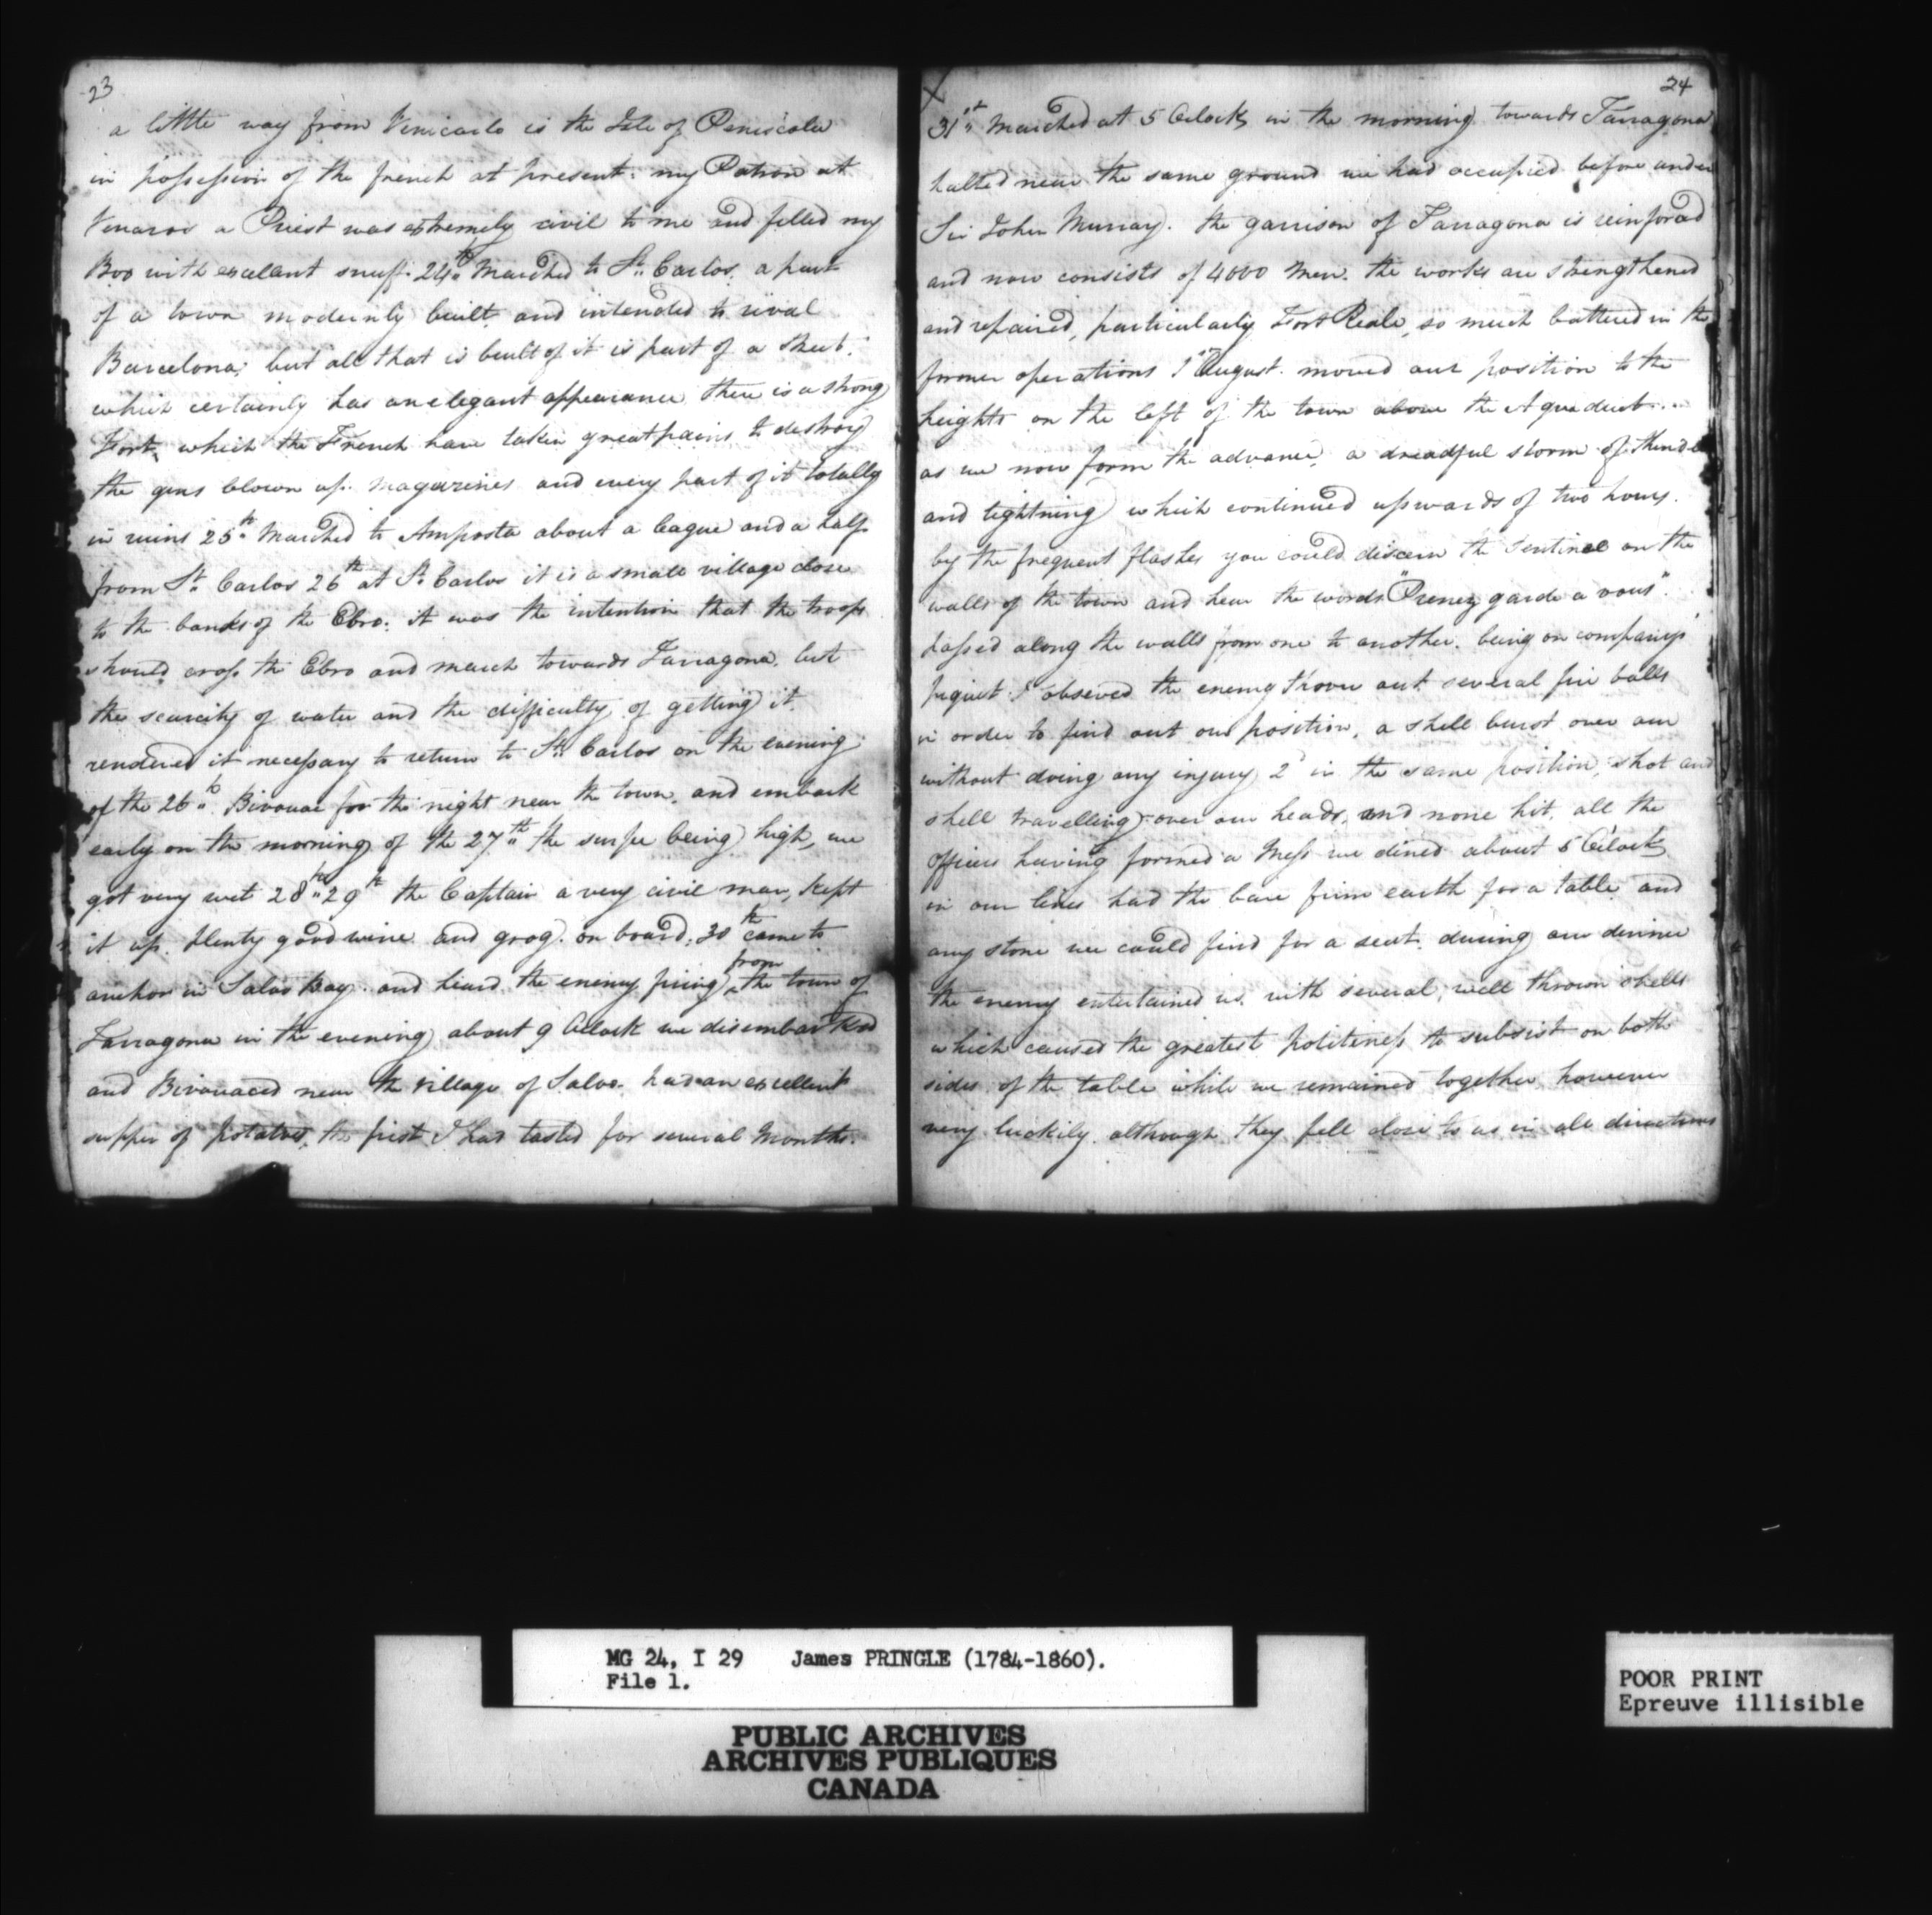 23
a little way from Vinicarlo is the Isle of Peniscola
in possession of the french at present. my Patron at
Vinaros a Priest was extremely civil to me and filled my
Box with excelant snuff. 24th Marched to St. Carlos. a part
of a town modernly built and intended to rival
Barcelona; but all that is built of it is part of a Street.
which certainly has an elegant appearance there is a strong
Fort, which the French have taken great pains to destroy
the guns blown up. magazines and every part of it totally
in ruins 25th Marched to Amposta about a league and a half
from St. Carlos 26th at St. Carlos it is a small village close
to the banks of the Ebro: it was the intention that the troops
should cross the Ebro and march towards Tarragona. but
the scarcity of water and the difficulty of getting it
rendered it necessary to return to St. Carlos on the evening
of the 26th. Bivouac for the night near the town, and embark
early on the morning of the 27th the surfe being high, we
got very wet 28th 29th the Captain a very civil man, kept
it up. plenty good wine and grog. on board; 30th came to
anchor in Salos Bay. and heard the enemy firing from the town of
Tarragona in the evening about 9 OClock we disembarked
and Bivouaced near the village of Salos. had an excellent
supper of potatoes, the first I had tasted for several Months.
24
31st Marched at 5 OClock in the morning towards Tarragona
halted near the same ground we had occupied before under
Sir John Murray. the garrison of Tarragona is reinforced
and now consists of 4000 Men. the works are strengthened
and repaired, particularly Fort Reale, so much battered in the
former operations 1st August. moved our position to the
heights on the left of the town above the Aqueduct...
as we now form the advance, a dreadful storm of thunder
and lightning which continued upwards of two hours.
by the frequent flashes you could discern the Sentinel on the
walls of the town and hear the words "Prenez garde a vous".
passed along the walls from one to another. being on company's
piquet I observed the enemy throw out several fire balls
in order to find out our position, a shell burst over our
without doing any injury 2d in the same position, shot and
shell travelling over our heads, and none hit. all the
officers having formed a Mess we dined about 5 OClock
in our lines had the bare firm earth for a table and
any stone we could find for a seat. during our dinner
the enemy entertained us. with several, well thrown shells
which caused the greatest politeness to subsist on both
sides of the table while we remained together however
very luckily. although they fell close to us in all directions
MG 24, I 29 James PRINGLE (1784-1860).
File 1.
PUBLIC ARCHIVES
ARCHIVES PUBLIQUES
CANADA
POOR PRINT
Epreuve illisible